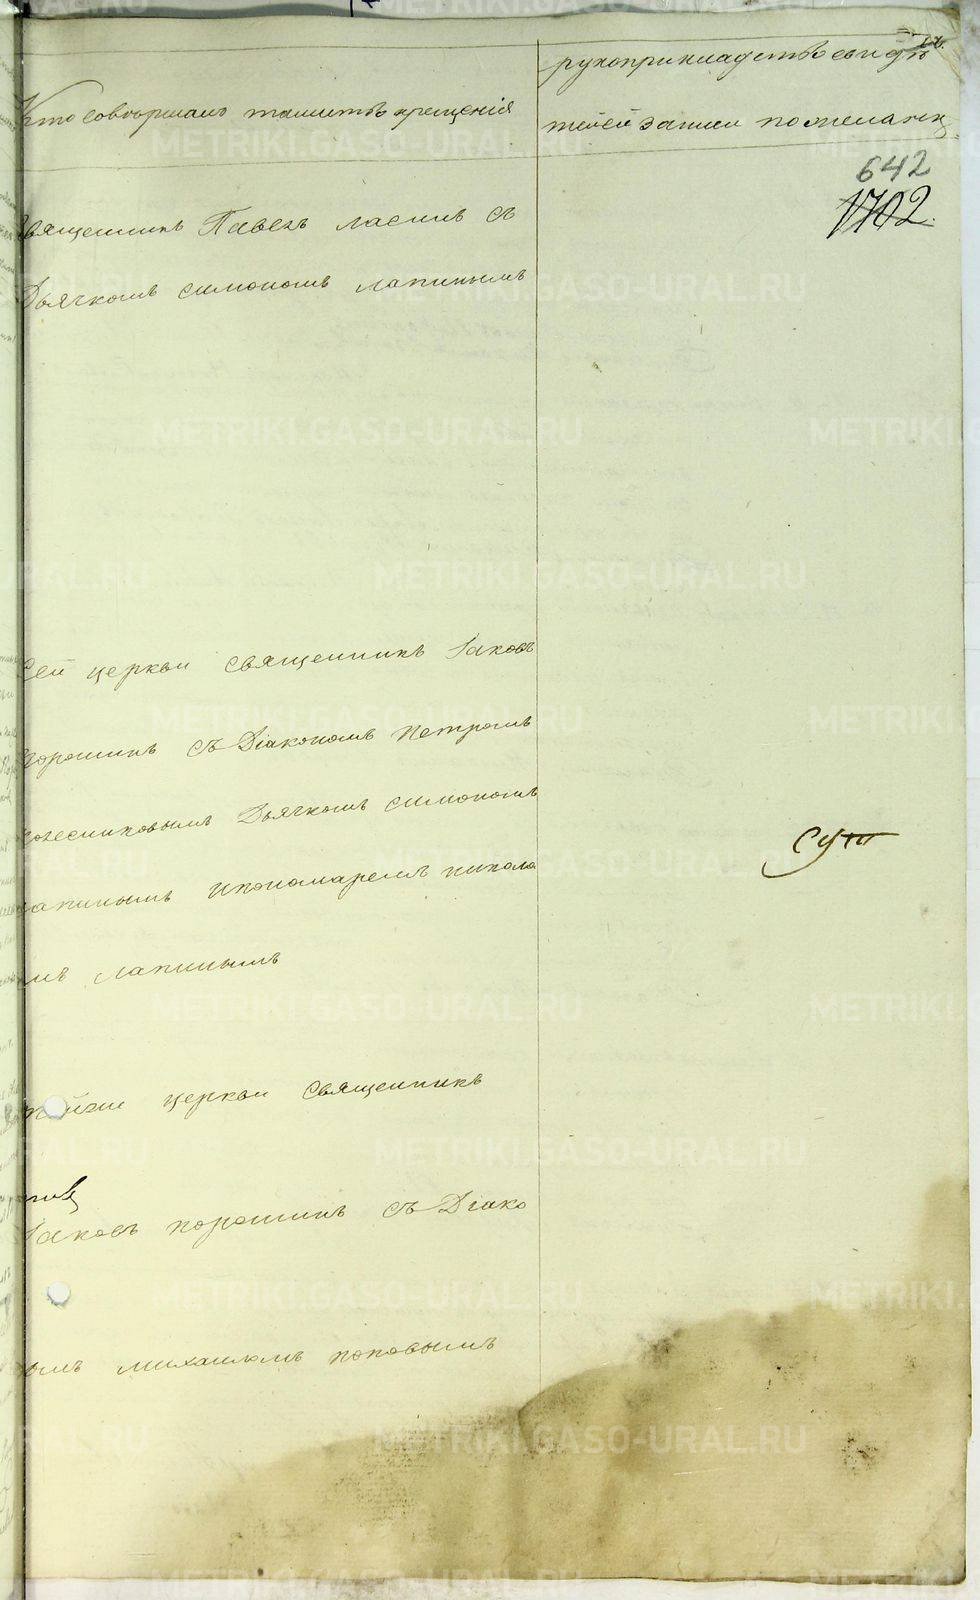 Кто совершалъ таинство крещенія
рукоприкладство свидѣ
телей записи по желанію
642
1702.
Священникъ Павелъ с
Дьячкомъ симономъ лапинымъ
Сей церкви священникъ Іаковъ
порошинъ съ Діакономъ петромъ
колесниковымъ Дьячкомъ симономъ
лапинымъ ипономаремъ никола
мъ лапинымъ
церкви священникъ
Іаковъ порошинъ съ Діако
номъ михаиломъ поповымъ
METRIKI.GASO-URAL.RU